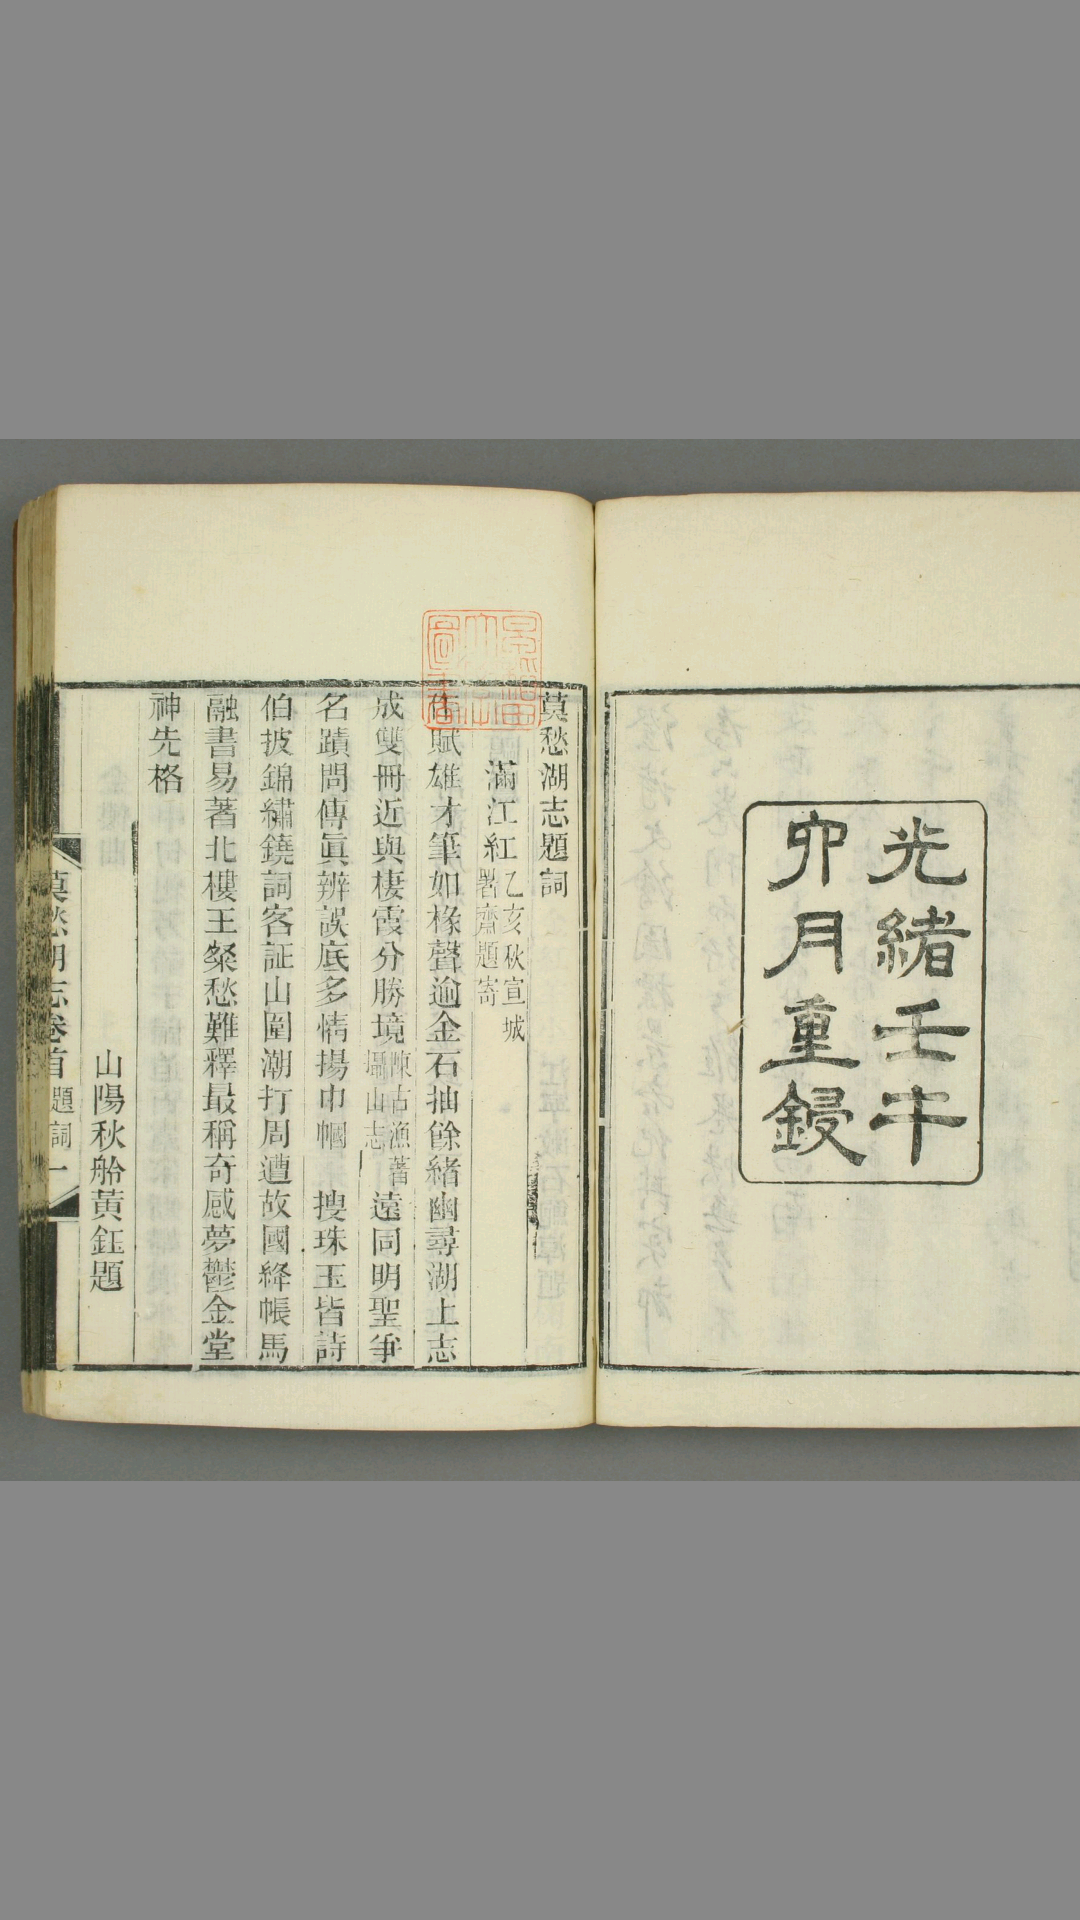 光緒壬午
卯月重鋟
莫愁湖志題詞
滿江紅乙亥秋宣城
署齋題寄
賦雄才筆如椽聲逾金石抽餘緒幽尋湖上志
成雙冊近與棲霞分勝境陳古漁著
攝山志遠同明聖爭
名蹟問傳眞辨誤底多情揚巾幗 搜珠玉皆詩
伯披錦繡鐃詞客証山圍潮打周遭故國絳帳馬
融書易著北樓王粲愁難釋最稱奇感夢鬱金堂
神先格
山陽秋舲黃鈺題
莫愁湖志卷首 題詞 一